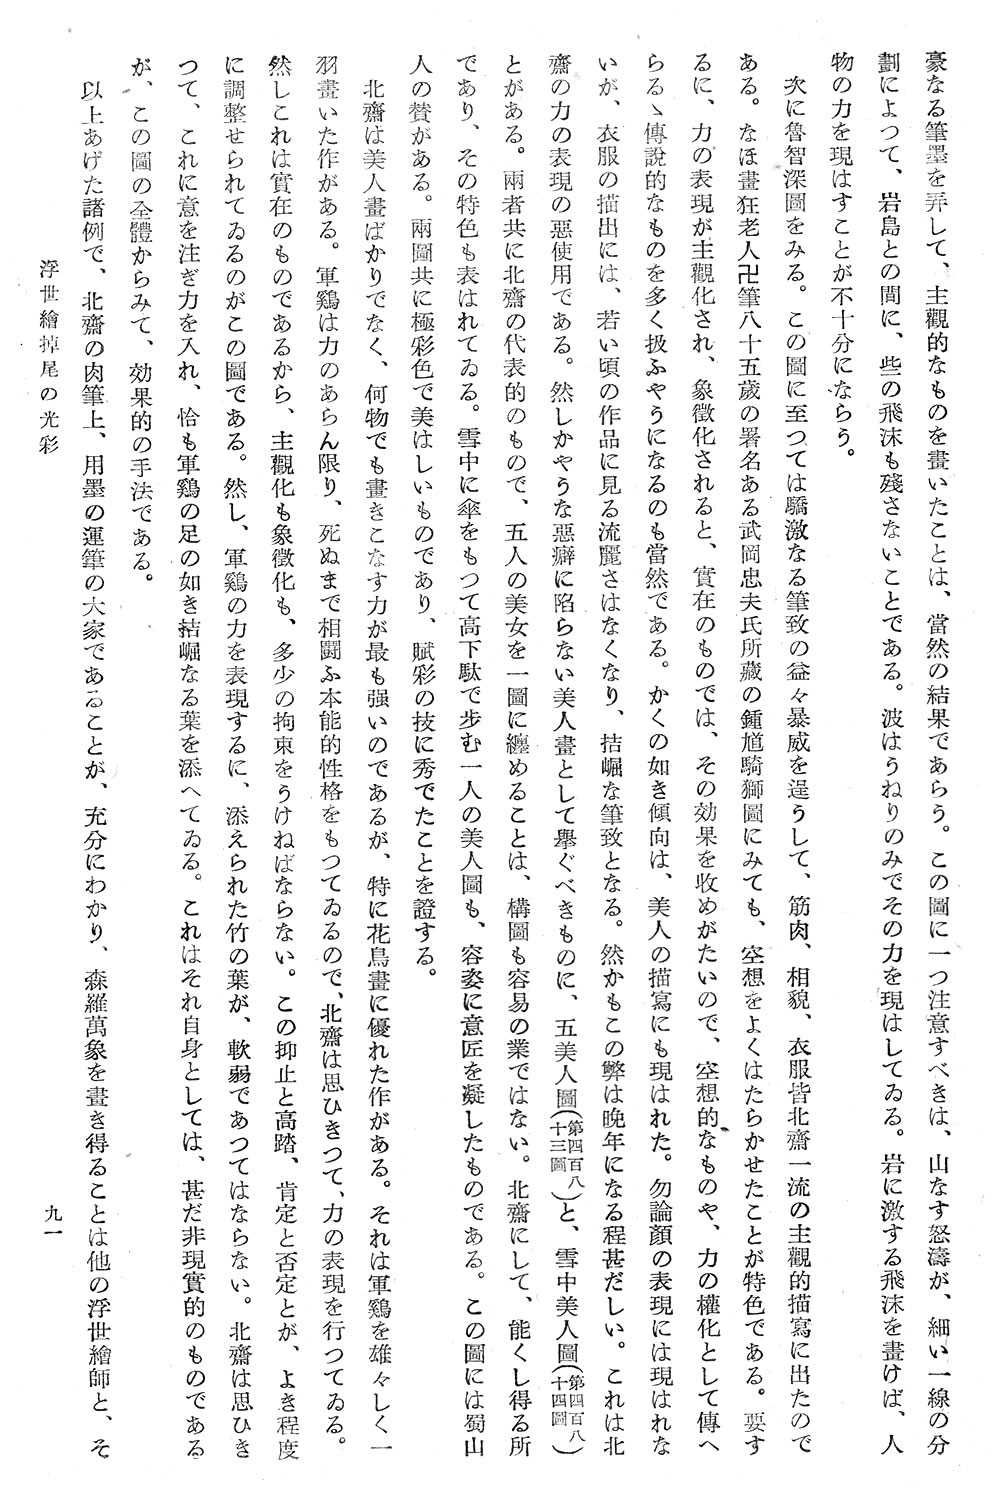 豪なる筆墨を弄して、主觀的なものを畫いたことは、當然の結果であらう。この圖に一つ注意すべきは、山なす怒濤が、細い一線の分
劃によつて、岩島との間に、些の飛沫も殘さないことである。波はうねりのみでその力を現はしてゐる。岩に激する飛沫を畫けば、人
物の力を現はすことが不十分にならう。
次に魯智深圖をみる。この圖に至つては驕激なる筆致の益々暴威を逞うして、筋肉、相貌、衣服皆北齋一流の主觀的描寫に出たので
ある。なほ畫狂老人卍筆八十五歲の署名ある武岡忠夫氏所藏の鍾馗騎獅圖にみても、空想をよくはたらかせたことが特色である。要す
るに、力の表現が主觀化され、象徵化されると、實在のものでは、その効果を收めがたいので、空想的なものや、力の權化として傳へ
らるゝ傳說的なものを多く扱ふやうになるのも當然である。かくの如き傾向は、美人の描寫にも現はれた。勿論顏の表現には現はれな
いが、衣服の描出には、若い頃の作品に見る流麗さはなくなり、拮崛な筆致となる。然かもこの弊は晚年になる程甚だしい。これは北
齋の力の表現の惡使用である。然しかやうな惡癖に陷らない美人畫として擧ぐべきものに、五美人圖(第四百八十三圖)と、雪中美人圖(第四百八十四圖)
とがある。兩者共に北齋の代表的のもので、五人の美女を一圖に纏めることは、構圖も容易の業ではない。北齋にして、能くし得る所
であり、その特色も表はれてゐる。雪中に傘をもつて高下駄で步む一人の美人圖も、容姿に意匠を凝したものである。この圖には蜀山
人の贊がある。兩圖共に極彩色で美はしいものであり、賦彩の技に秀でたことを證する。
北齋は美人畫ばかりでなく、何物でも畫きこなす力が最も强いのであるが、特に花鳥畫に優れた作がある。それは軍鷄を雄々しく一
羽畫いた作がある。軍鷄は力のあらん限り、死ぬまで相鬪ふ本能的性格をもつてゐるので、北齋は思ひきつて、力の表現を行つてゐる。
然しこれは實在のものであるから、主觀化も象徵化も、多少の拘束をうけねばならない。この抑止と高踏、肯定と否定とが、よき程度
に調整せられてゐるのがこの圖である。然し、軍鷄の力を表現するに、添えられた竹の葉が、軟弱であつてはならない。北齋は思ひき
つて、これに意を注ぎ力を入れ、恰も軍鷄の足の如き拮崛なる葉を添へてゐる。これはそれ自身としては、甚だ非現實的のものである
が、この圖の全體からみて、効果的の手法である。
以上あげた諸例で、北齋の肉筆上、用墨の運筆の大家であることが、充分にわかり、森羅萬象を畫き得ることは他の浮世繪師と、そ
浮世繪掉尾の光彩
九一